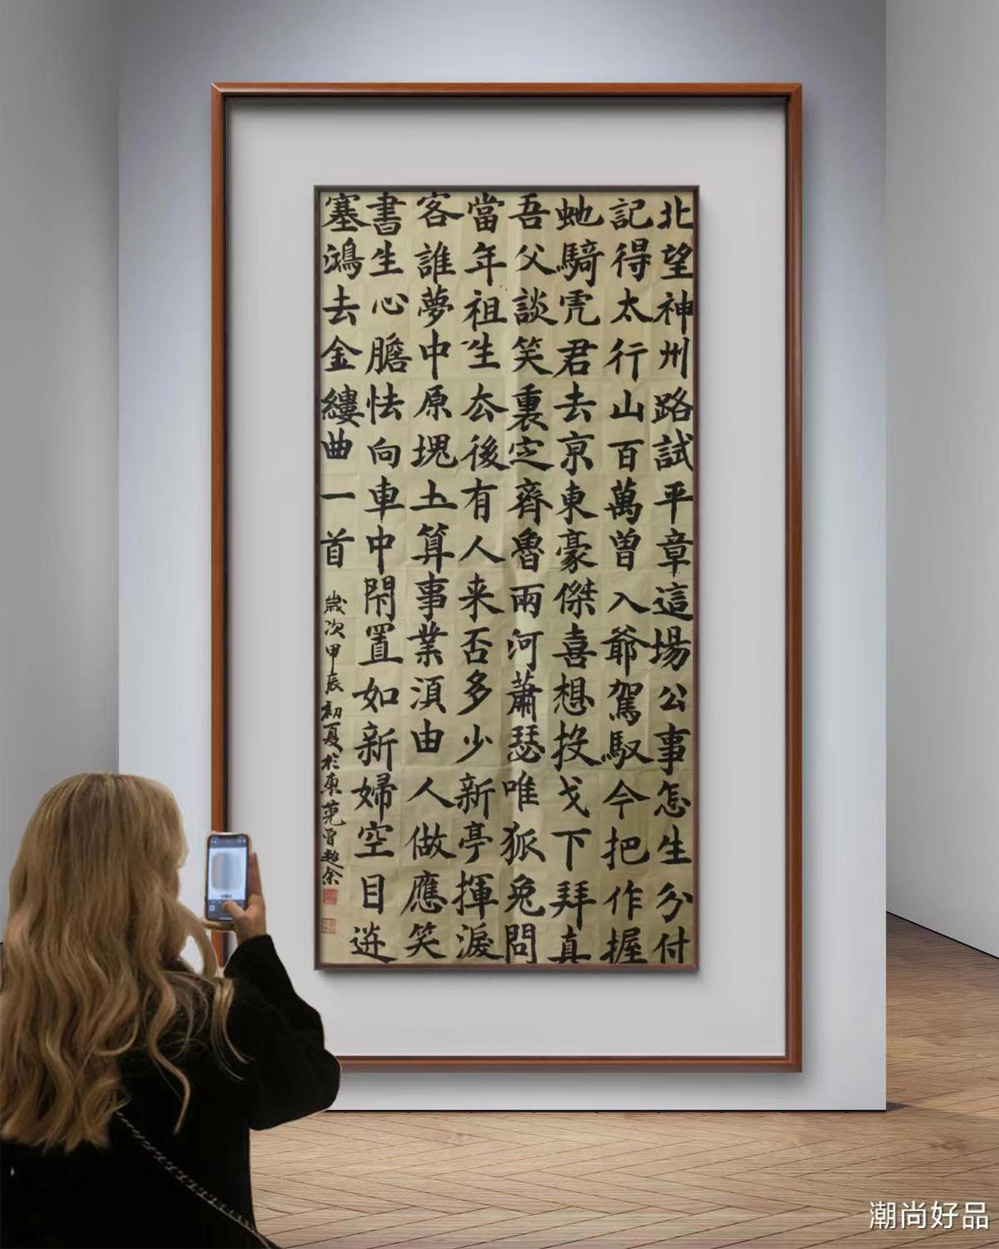 北望神州路試平章這場公事怎生分付
記得太行山百萬曾入爺駕馭今把作握
虵騎虎君去京東豪傑喜想投戈下拜真
吾父談笑裏定齊魯兩河蕭瑟唯狐兔問
當年祖生去後有人来否多少新亭揮淚
客誰夢中原塊土算事業須由人做應笑
書生心膽怯向車中閇置如新婦空目送
塞鴻去金縷曲一首
歲次甲辰初夏於東莞曾余
潮尚好品